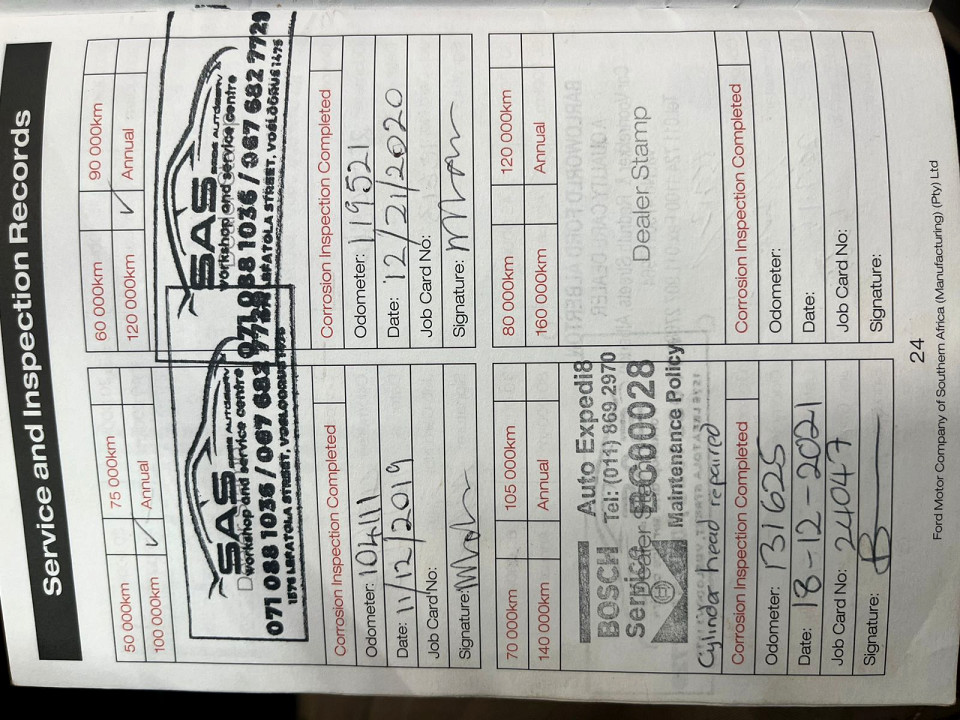 Service and Inspection Records
50 000km
75 000km
100 000km
Annual
SAS
SEME AUTOSERV
workshop and service centre
071 088 1036 / 067 682 7729
Corrosion Inspection Completed
Odometer: 104111
Date: 11/12/2019
Job Card No:
Signature:
60 000km
90 000km
120 000km
Annual
SAS
workshop and service centre
071 088 1036 / 067 682 7729
STREET, VOSLOORUS 1475
Corrosion Inspection Completed
Odometer: 119521
Date: 12/21/2020
Job Card No:
Signature:
70 000km
105 000km
140 000km
Annual
BOSCH
Service
Auto Expedi8
Tel: (011) 869 2970
BC00028
Maintenance Policy
Cylinder head repaired
Corrosion Inspection Completed
Odometer: 131625
Date: 18-12-2021
Job Card No: 24047
Signature:
80 000km
120 000km
160 000km
Annual
Dealer Stamp
Corrosion Inspection Completed
Odometer:
Date:
Job Card No:
Signature:
24
Ford Motor Company of Southern Africa (Manufacturing) (Pty) Ltd